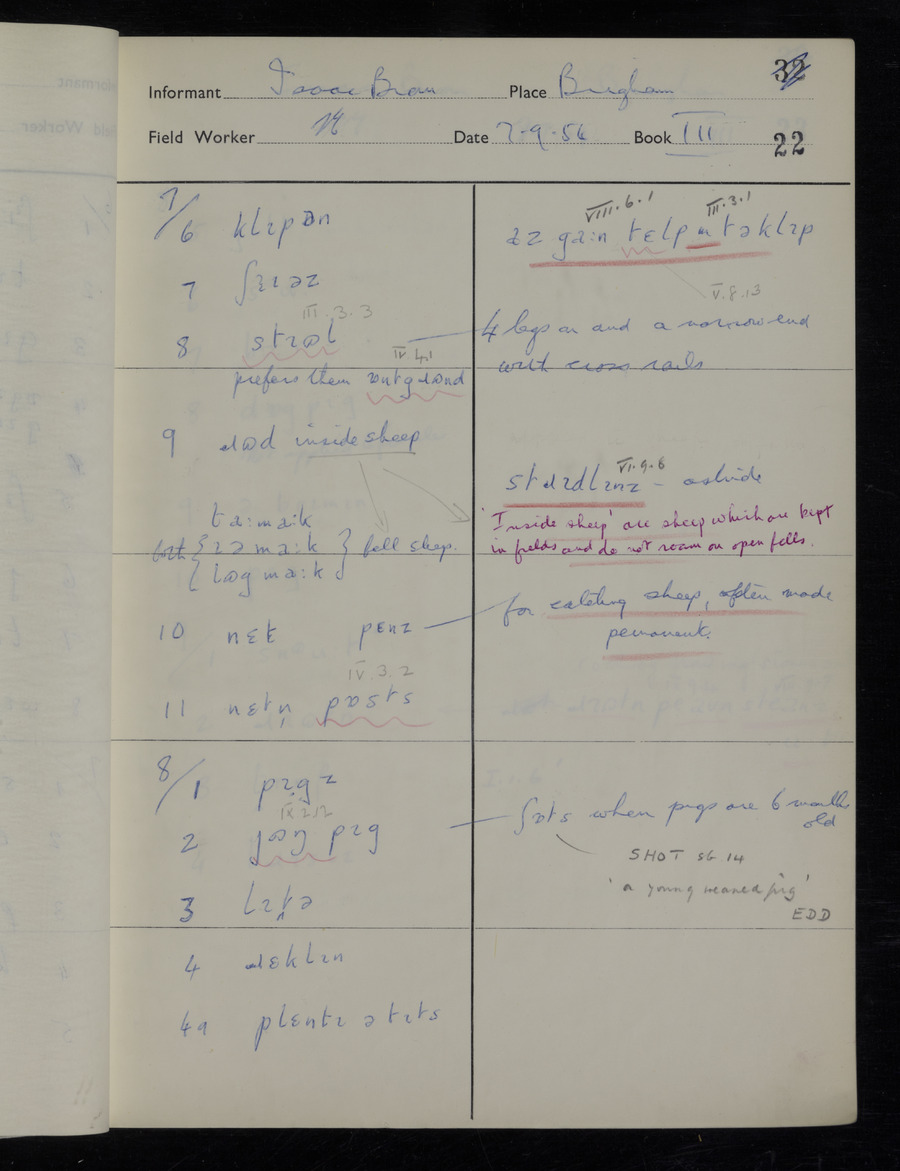 32
Informant Isaac Brown Place Brigham
Field Worker Date 7-9-54 Book III 22
7/6 klɪpən
VIII.6.1 III.3.1
az ga:n tɛlp ən tə klɪp
V.8.13
7 ʃɪɹəz
III.3.3
8 stɹɷl
IV.4.1
4 legs on and a narrow end
with cross rails
prefers them
9 ɹɷd inside sheep
VI.9.6
stɹɪdlɪnz - astride
'Inside sheep' are sheep which are kept
in fields and do not roam on open fells.
ta:ma:k
both { ɪəma:k } fell sheep.
{ lɷgma:k }
10 nɛt pɛnz
for catching sheep, often made
permanent.
IV.3.2
11 nɛtn̩ pɒsts
8/1 pɪgz
2 jɷŋ pɪg
ʃɒts when pigs are 6 months
old
SHOT sb 14
'a young weaned pig'
EDD
3 lɪtə
4 ɹɛklɪn
4a plɛntɪ ə tɪts